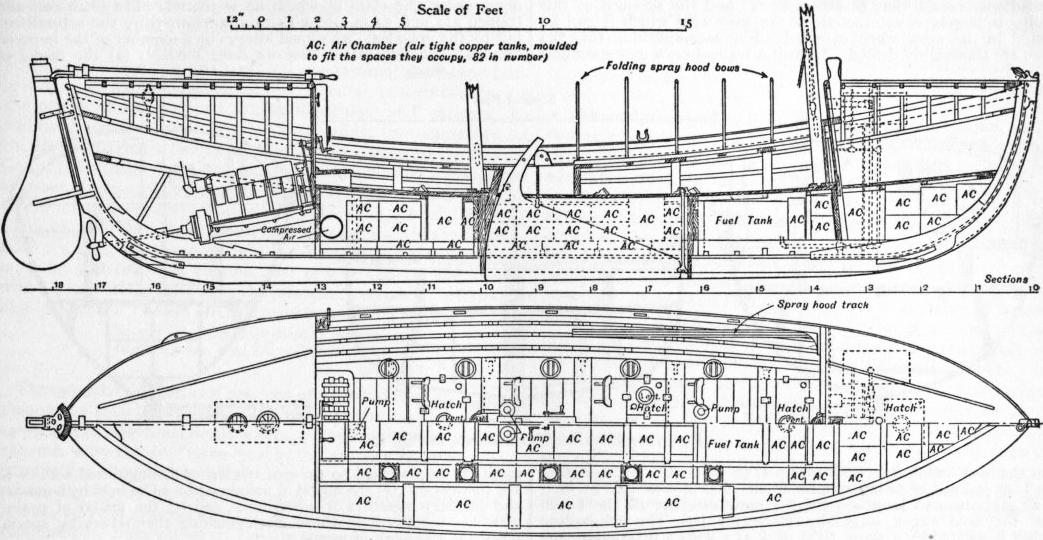 Scale of Feet
12" 0 1 2 3 4 5 10 15
AC: Air Chamber (air tight copper tanks, moulded
to fit the spaces they occupy, 82 in number)
Folding spray hood bows
AC AC AC AC
AC AC AC AC AC AC AC AC AC AC Fuel Tank AC AC AC
AC AC AC AC AC AC AC AC AC AC
Compressed
Air
AC AC
Sections
18 17 16 15 14 13 12 11 10 9 8 7 6 5 4 3 2 1 0
Spray hood track
Pump Hatch Vent Hatch Pump Hatch Hatch
Vent Vent
Pump
AC AC AC AC AC AC AC AC AC Fuel Tank AC AC AC AC AC AC
AC AC AC
AC AC AC AC AC AC AC AC AC AC AC AC AC AC
AC AC AC AC AC AC